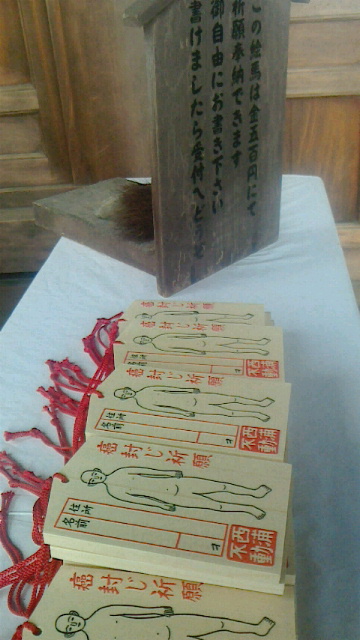 この絵馬は金五百円にて
祈願奉納できます
御自由にお書き下さい
書けましたら受付へどうぞ
癌封じ祈願
癌封じ祈願
住所
名前
才
西浦
不動
癌封じ祈願
住所
名前
才
西浦
不動
癌封じ祈願
住所
名前
才
西浦
不動
癌封じ祈願